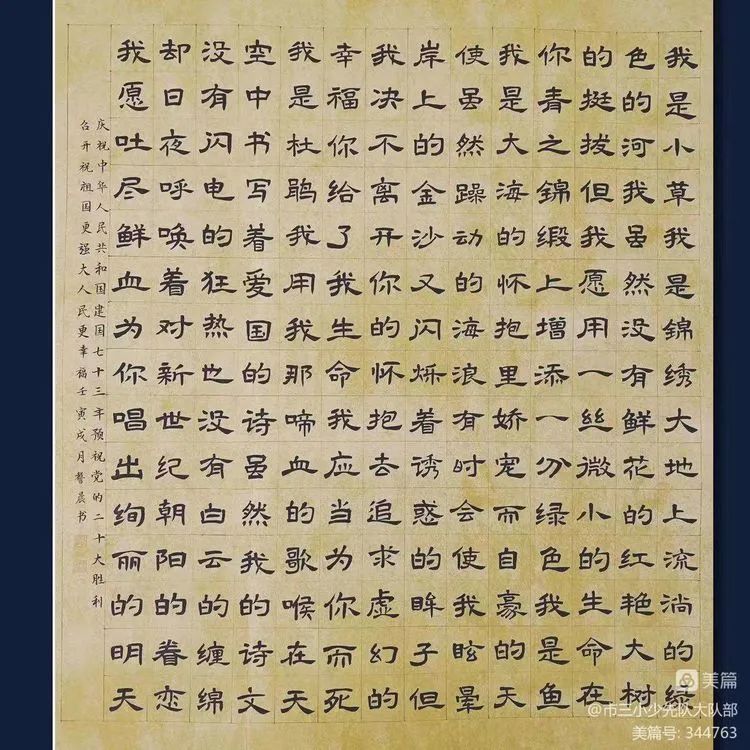 我是小草我是錦绣大地上流淌的绿
色的河我虽然没有鲜花的红艳大树
的挺拔但我愿用一丝微小的生命在
你青之錦缎上增添一分绿色我是鱼
我是大海的怀抱里娇宠而自豪的天
使虽然躁动的海浪有时会使我眩晕
岸上的金沙又闪烁着诱惑的眸子但
我决不离开你的怀抱去追求虚幻的
幸福你给了我生命我应当为你而死
我是杜鹃我用我那啼血的歌喉在天
空中书写着爱国的诗虽然我的诗文
没有闪电的狂热也没有白云的缠绵
却日夜呼唤着对新世纪朝阳的眷恋
我愿吐尽鲜血为你唱出绚丽的明天
庆祝中华人民共和国建国七十三年预祝党的二十大胜利
召开祝祖国更强大人民更幸福壬寅戌月晨书
美篇
@市三小少先队大队部
美篇号: 344763